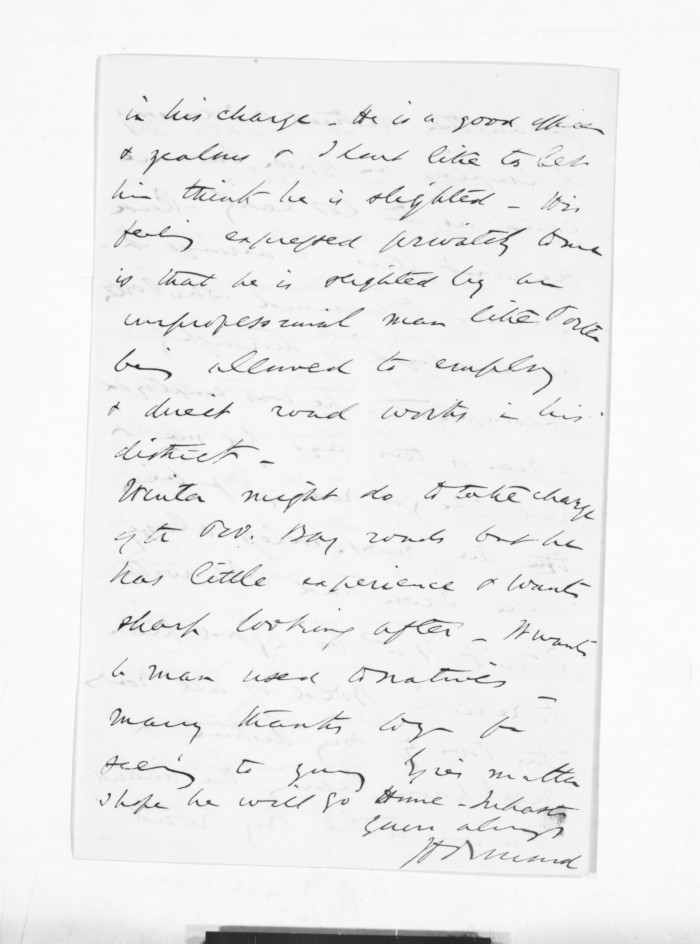 in his charge - He is a good officer
& zealous & I dont like to let
him think he is slighted - His
feeling expressed privately to me
is that he is slighted by an
unprofessional man like Porter
being allowed to employ
& direct road works in his
district -
Winter might do to take charge
of the Pov. Bay roads but he
has little experience & wants
sharp looking after - It wants
a man used to natives -
Many thanks to you for
seeing to young matter
I hope he will go Home - In haste
Yours always
J D Ormond